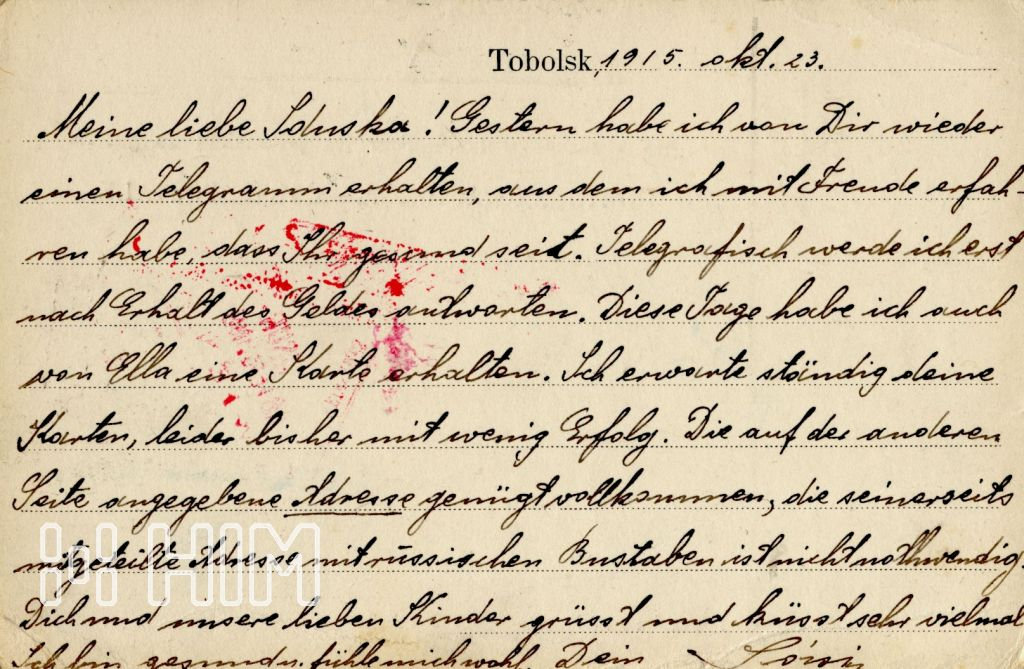 Tobolsk, 1915. okt. 23.
Meine liebe Iduska! Gestern habe ich von Dir wieder
einen Telegramm erhalten, aus dem ich mit Freude erfah-
ren habe, dass Ihr gesund seit. Telegrafisch werde ich erst
nach Erhalt des Geldes antworten. Diese Tage habe ich auch
von Ella eine Karte erhalten. Ich erwarte ständig deine
Karten, leider bisher mit wenig Erfolg. Die auf der anderen
Seite angegebene Adresse genügt vollkommen, die seinerseits
mitgeteilte Adresse mit russischen Bustaben ist nicht nothwendig.
Dich und unsere lieben Kinder grüsst und küsst sehr vielmal
Ich bin gesund u. fühle mich wohl. Dein
HIM